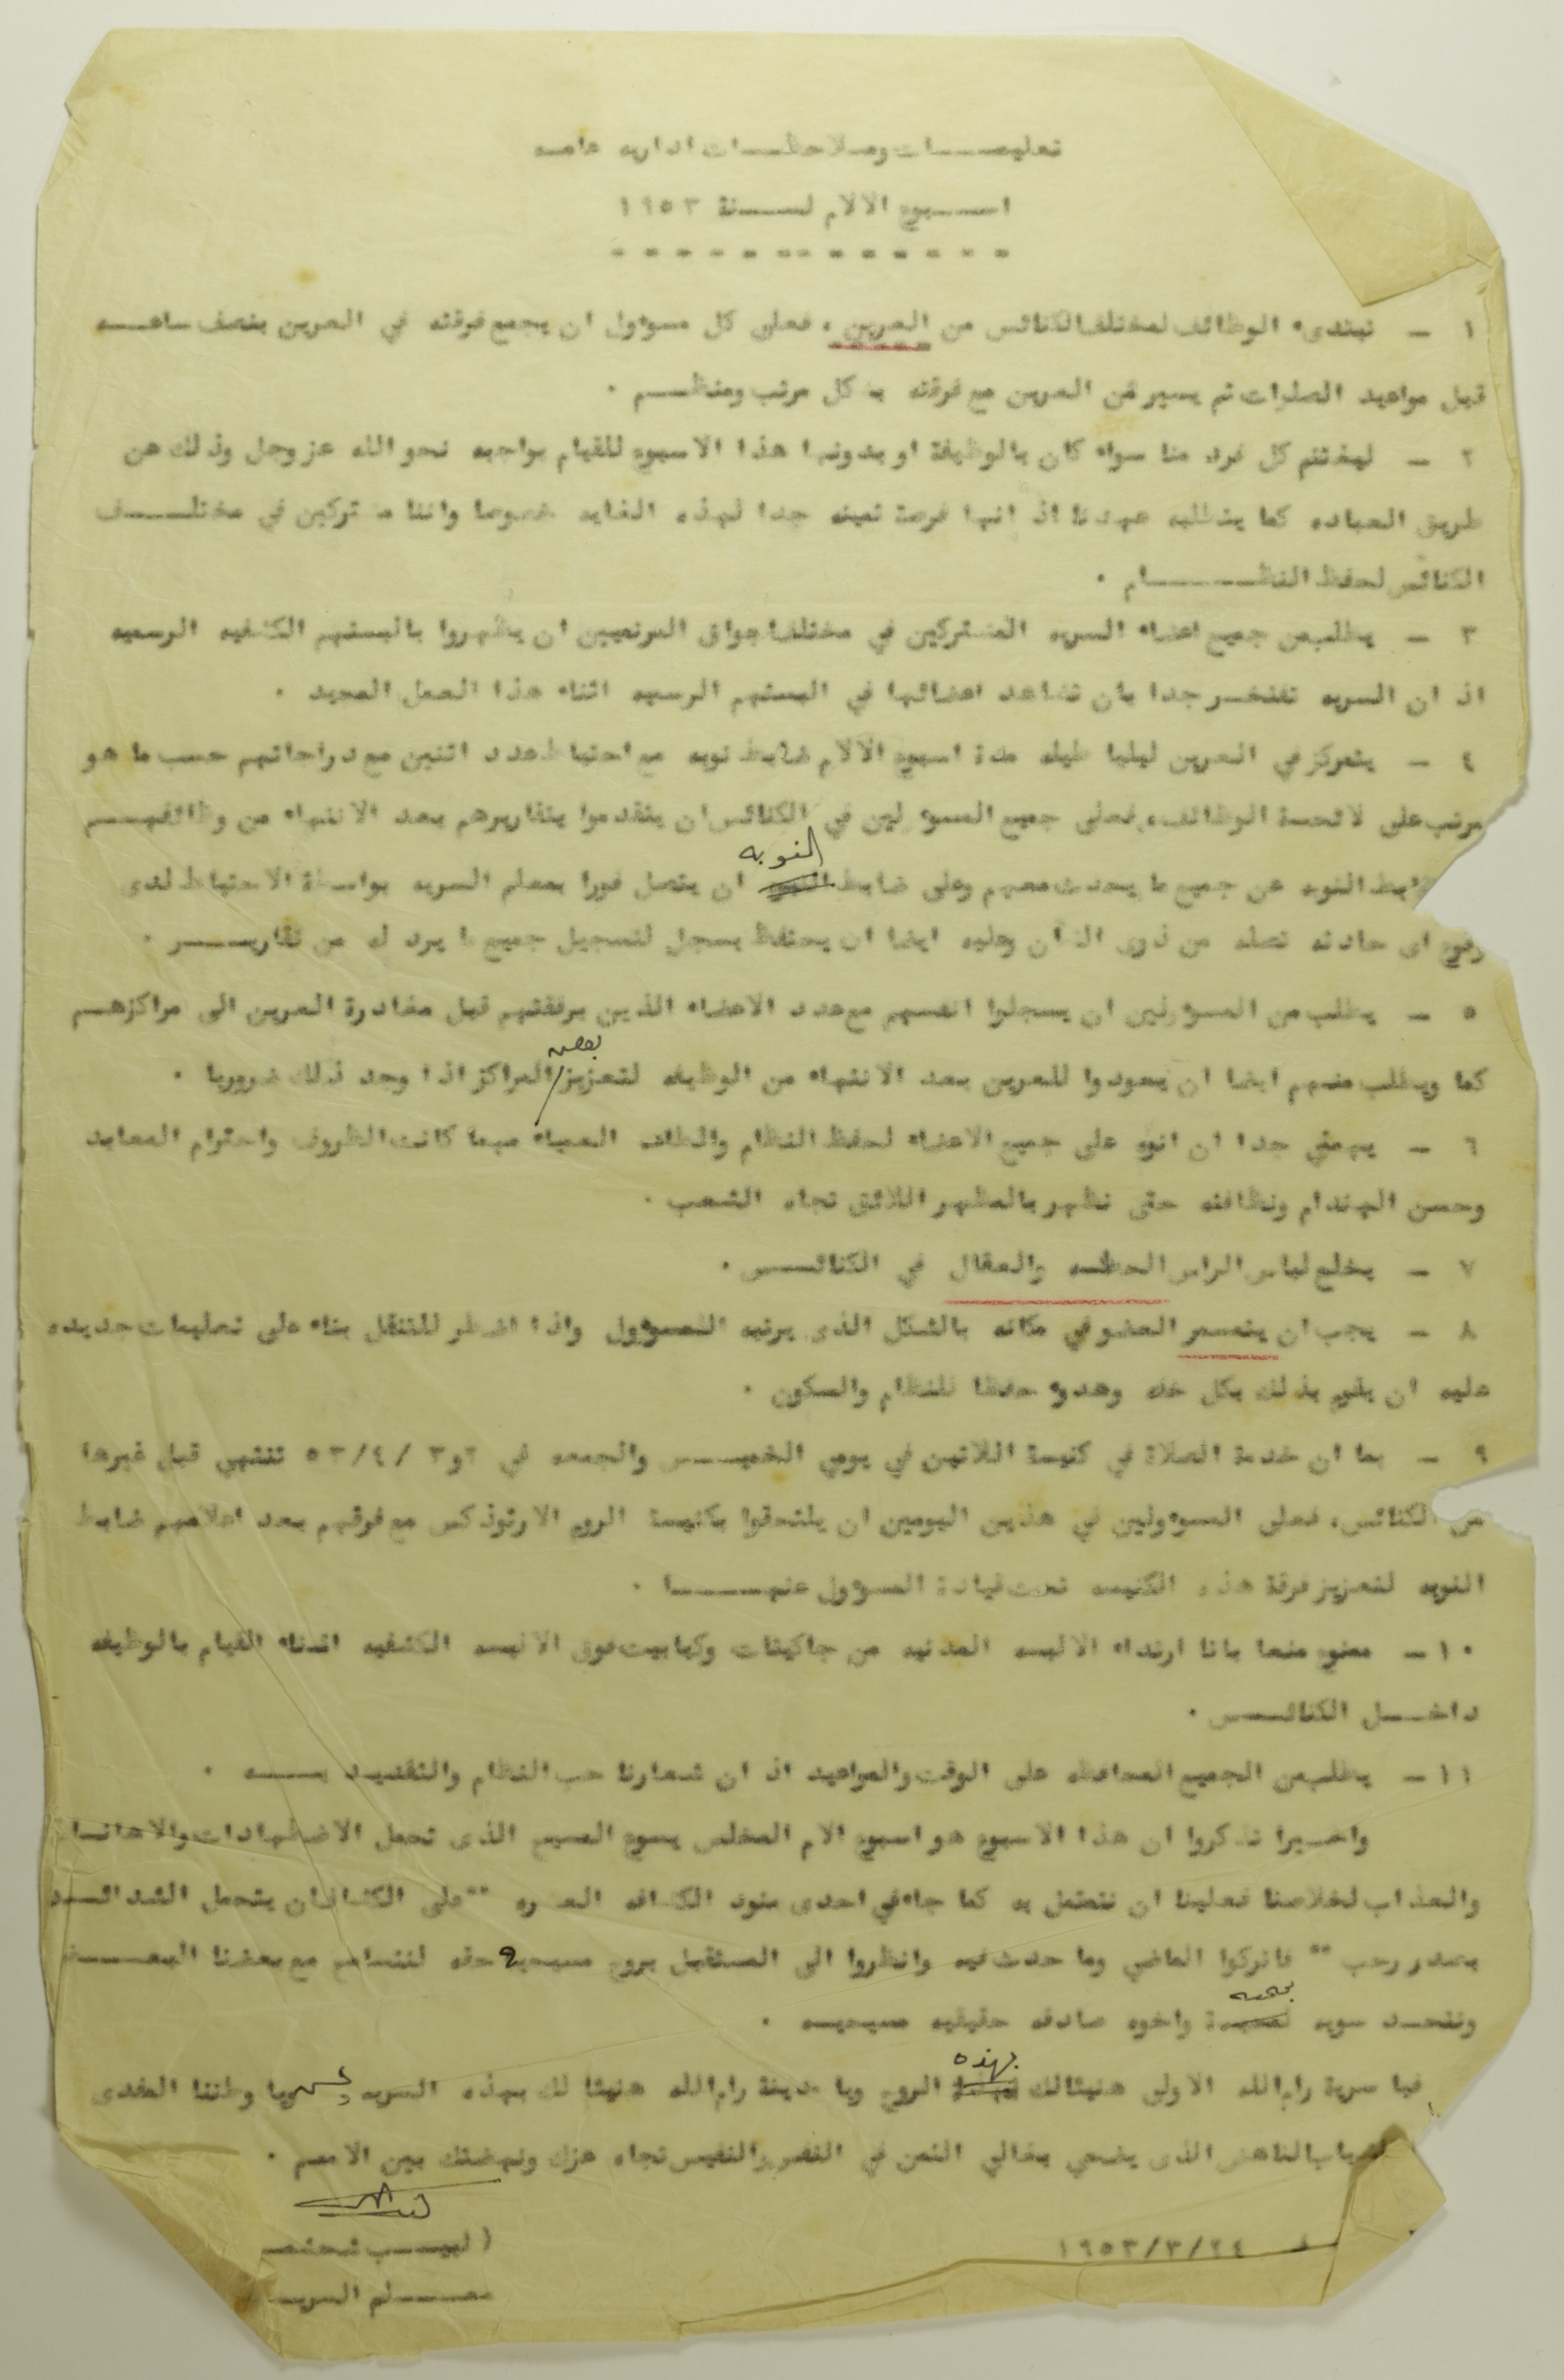 تعليمـــات ومـلاحظـــات اداريه عامـه
اســبوع الالام لســـنة ١٩٥٣
١ – تبتدىء الوظائف لمختلف الكنائس من العرين ، فعلى كل مسؤول ان يجمع فرقته في العرين بنصف ساعـــه
قبل مواعيد الصلوات ثم يسير من العرين مع فرقته بشكل مرتب ومنظـــم ٠
٢ – ليغتنم كل فرد منا سواء كان بالوظيفة او بدونها هذا الاسبوع للقيام بواجبه نحو الله عز وجل وذلك عن
طريق العباده كما يتطلبه عهدنا اذ انها فرصة ثمينه جدا لهذه الغايه خصوصا واننا مشتركين في مختلـــف
الكنائس لحفظ النظـــــام ٠
٣ – يطلب من جميع اعضاء السريه المشتركين في مختلف اجواق المرنمين ان يظهروا بالبستهم الكشفيه الرسميه
اذ ان السريه تفتخــر جدا بان تشاهد اعضائها في البستهم الرسميه اثناء هذا العمل المجيد ٠
٤ – يتمركز في العرين ليليا طيله مدة اسبوع الالام ضابط نوبه مع احتياط عدد اثنين مع دراجاتهم حسب ما هو
مرتب على لائحة الوظائف ، فعلى جميع المسؤولين في الكنائس ان يتقدموا بتقاريرهم بعد الانتهاء من وظائفهـــم
ضابط النوبه عن جميع ما يحدث معهم وعلى ضابط النوبه ان يتصل فورا بمعلم السريه بواسطة الاحتياط لدى
وقوع اى حادثه تصله من ذوى الشآن وعليه ايضا ان يحتفظ بسجل لتسجيل جميع ما يرد له من تقاريـــر ٠
٥ – يطلب من المسؤولين ان يسجلوا انفسهم مع عدد الاعضاء الذين برفقتهم قبل مغادرة العرين الى مراكزهــم
كما ويطلب منهم ايضا ان يعودوا للعرين بعد الانتهاء من الوظيفه لتعزيز بعض المراكز اذا وجد ذلك ضروريا ٠
٦ – يهمني جدا ان انوه على جميع الاعضاء لحفظ النظام والطاعه العمياء مهما كانت الظروف واحترام المعابد
وحسن الهندام ونظافته حتى نظهر بالمظهر اللائق تجاه الشعب ٠
٧ – يخلع لباس الراس الحطــه والعقال في الكنائـــس ٠
٨ – يجب ان يتسمر العضو في مكانه بالشكل الذى يرتبه المسؤول واذا اضطر للتنقل بناء على تعليمات جديده
عليه ان يقوم بذلك بكل خفه وهدوء حفظا للنظام والسكون ٠
٩ – بما ان خدمة الصلاة في كنيسة اللاتين في يومي الخميـــس والجمعه في ٢و٣ /٤/ ٥٣ تنتهي قبل غيرها
من الكنائس ، فعلى المسؤولين في هذين اليومين ان يلتحقوا بكنيسة الروم الارثوذكس مع فرقهم بعد اعلامهم ضابط
النوبه لتعزيز فرقة هذه الكنيسه تحت قيادة المسؤول عنهـــــا ٠
١٠ – ممنوع منعا باتا ارتداء الالبسه المدنيه من جاكيتات وكبابيت فوق الالبسه الكشفيه اثناء القيام بالوظيفه
داخــل الكنائـــس ٠
١١ – يطلب من الجميع المحافظه على الوقت والمواعيد اذ ان شعارنا حب النظام والتقيـد بـــه ٠
واخــيرا تذكروا ان هذا الاسبوع هو اسبوع الام المخلص يسوع المسيح الذى تحمل الاضطهادات والاهانــات
والعذاب لخلاصنا فعلينا ان نتمثل به كما جاء في احدى بنود الكشافه العشره "على الكشاف ان يتحمل الشدائـــد
بصدر رحب " فاتركوا الماضي وما حدث فيه وانظروا الى المستقبل بروح مسيحيه حقه لنتسامح مع بعضنا البعـــض
ونتحــد سويه بمحبه واخوه صادقه حقيقيه مسيحيــه ٠
فيا سرية رام الله الاولى هنيئا لك بهذه الروح ويا مدينة رام الله هنيئا لك بهذه السريه ويا وطننا المفدى
بالشباب الناهض الذى يضحي بغالي الثمن في النفس والنفيس تجاه عزك ونهضتك بين الامـم ٠
١٩٥٣/٣/٢٤
( لبيـــب
معـــلم السريـــه